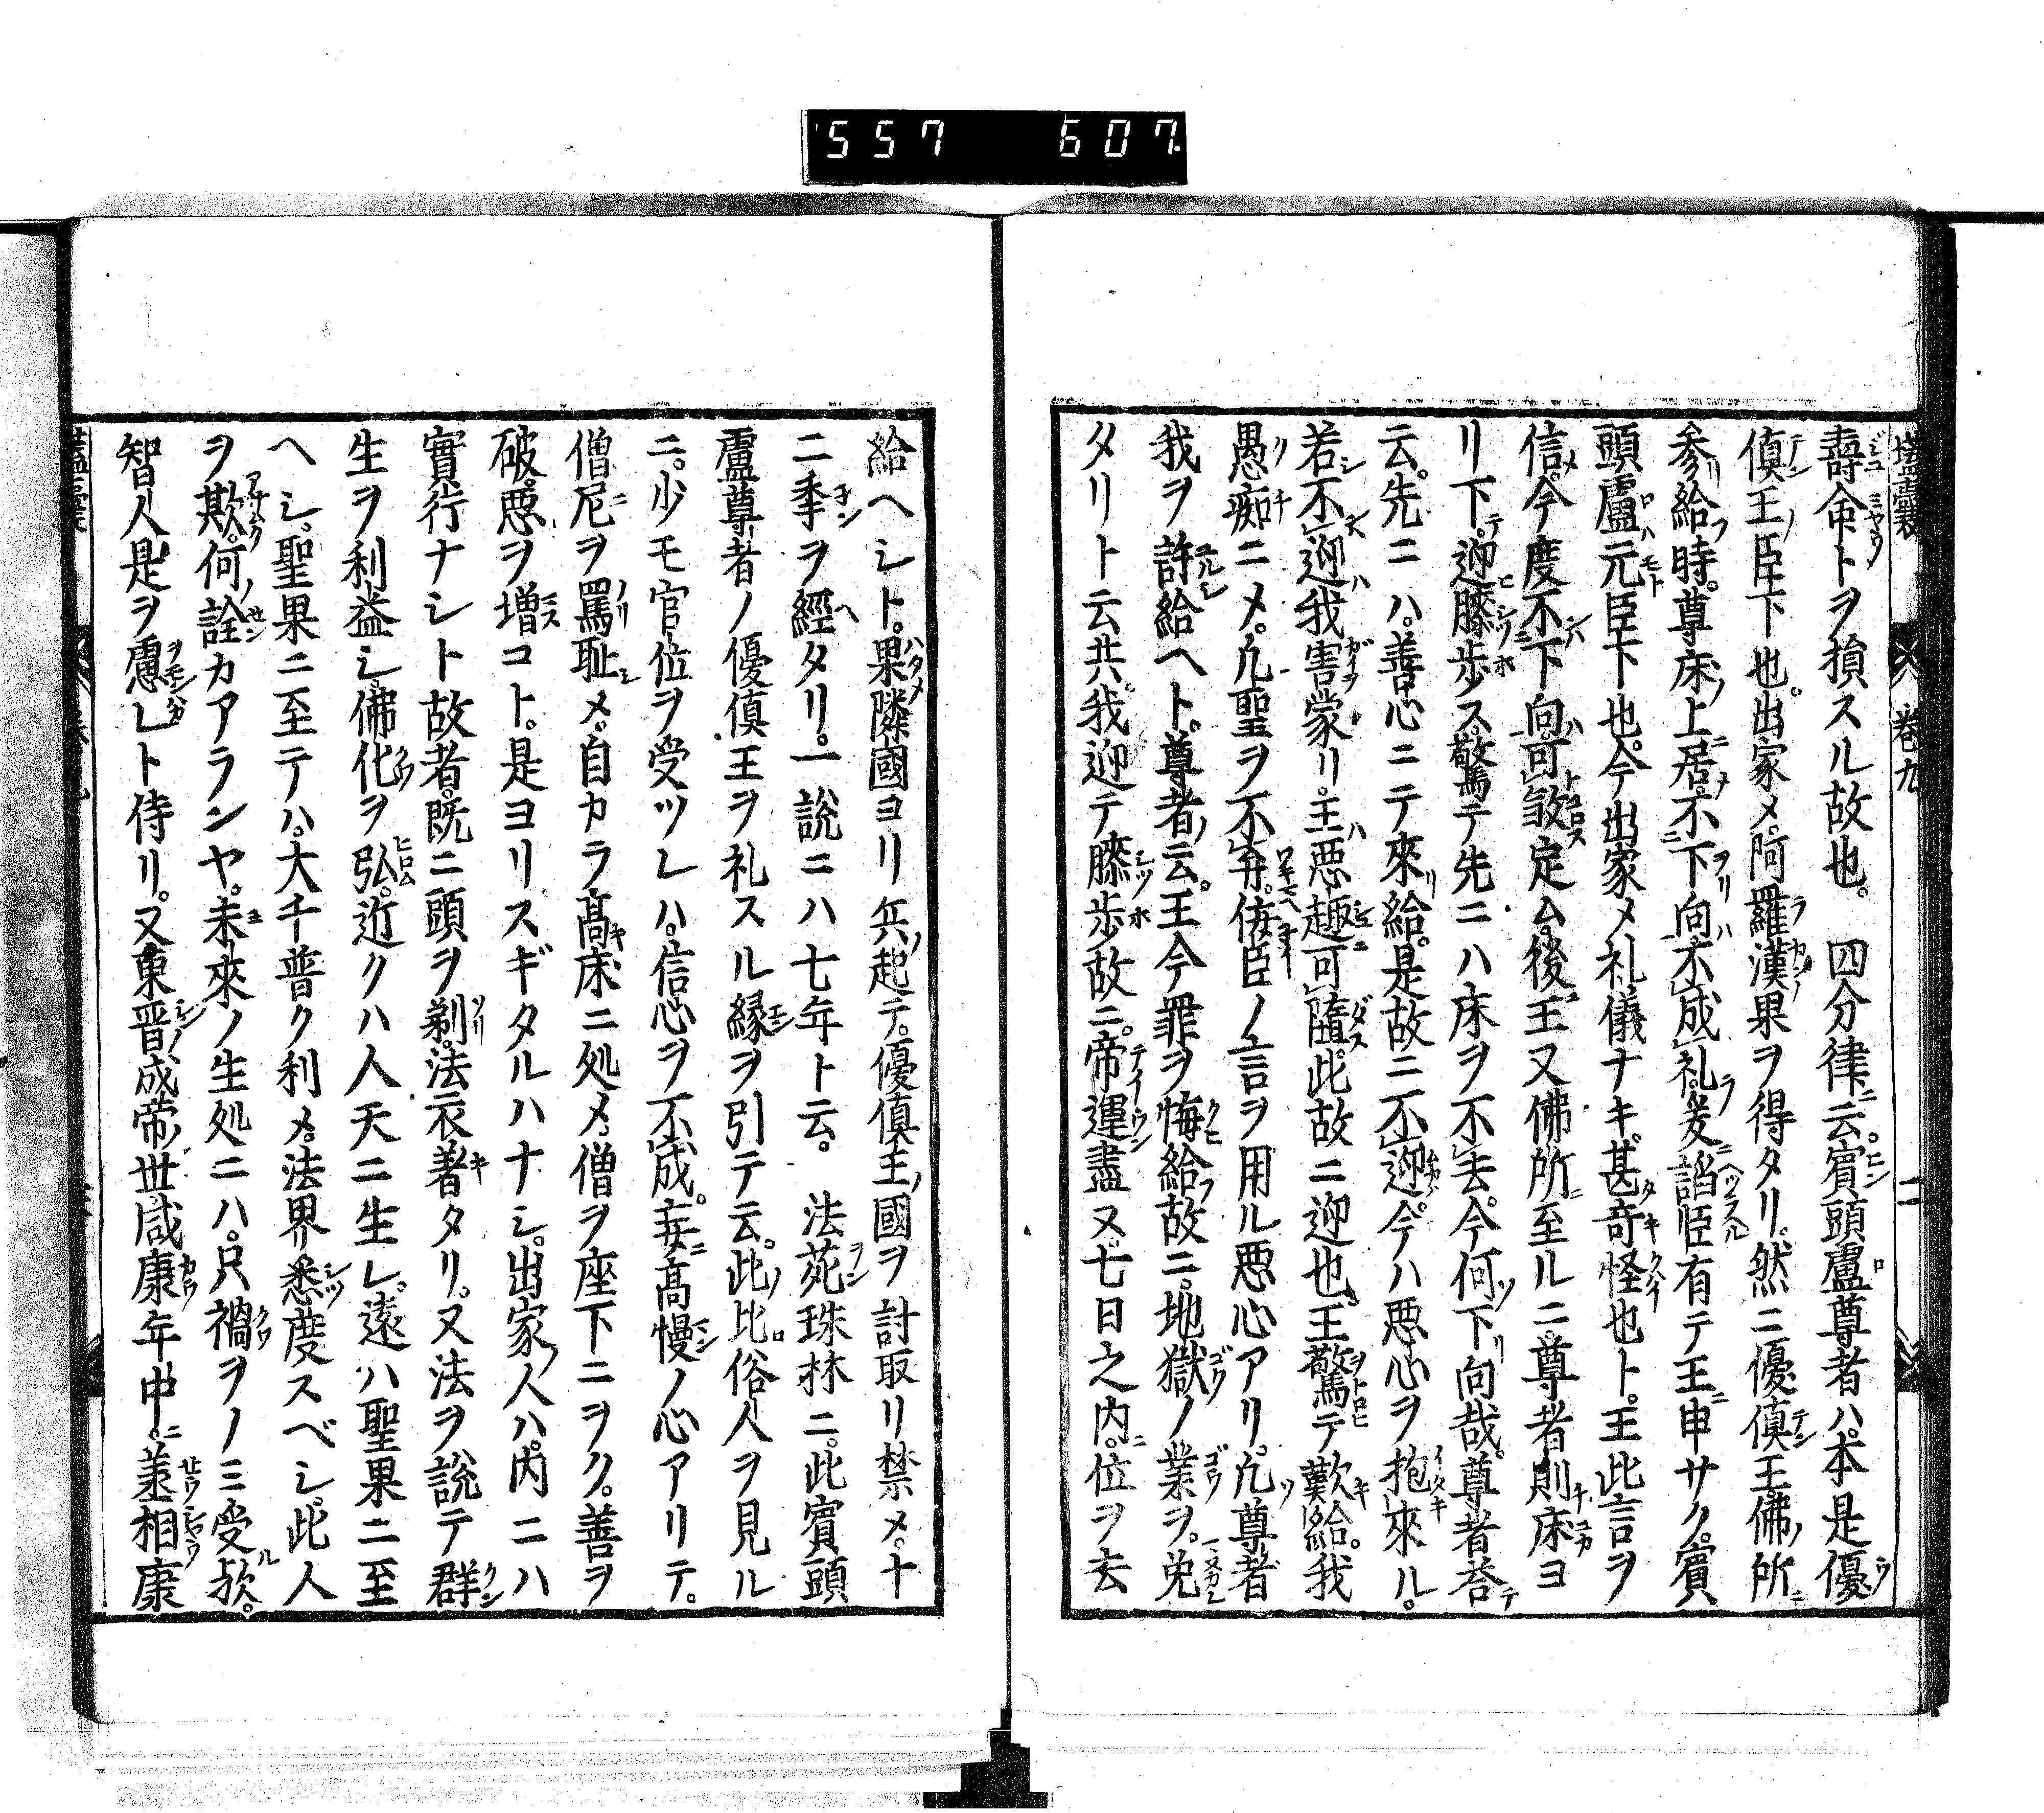 557 607
壒囊 卷九 二
壽命トヲ損スル故也。 四分律ニ云。賓頭盧尊者ハ。本是優
傎王ノ臣下也。出家メ。阿羅漢果ヲ得タリ。然ニ優傎王佛ノ所ニ
參リ給フ時。尊床ノ上ニ居メ。不下向ハ不成礼。爰ニ諂臣有テ王ニ申サク。賓
頭盧ハ元臣下也。今出家メ礼儀ナキ。甚タ奇怪也ト。王此言ヲ
信メ。今度不ニ下向ハ可敚定ム。後王又佛所ニ至ルニ。尊者則床ヨ
リ下テ。迎膝歩ス。驚テ先ニハ床ヲ不去。今何ソ下リ向哉。尊者荅テ
云。先ニハ。善心ニテ來リ給。是故ニ不迎。今ハ悪心ヲ抱キ來ル。
若シ不迎ハ我害ヲ蒙リ。王ハ悪趣ニ可隨。此故ニ迎也。王驚テ歎キ給。我
愚痴ニメ。凢聖ヲ不弁。侫臣ノ言ヲ用ル悪心アリ。凢ソ尊者
我ヲ許シ給ヘト。尊者ノ云。王今罪ヲ悔ヒ給フ故ニ。地獄ノ業ヲ。免
タリト云共。我迎テ膝歩故ニ。帝運盡ヌ。七日之内ニ。位ヲ去
給ヘシト。果メ隣國ヨリ兵ノ起テ。優傎王ノ國ヲ討取リ禁メ。十
二季ヲ經タリ。一說ニハ七年ト云。 法苑珠林ニ。此賓頭
盧尊者ノ優傎王ヲ礼スル縁ヲ引テ云。此ノ比俗人ヲ見ル
ニ。少モ官位ヲ受ツレハ。信心ヲ不成。妄ニ髙慢ノ心アリテ。
僧尼ヲ罵リ耻シメ。自カラ髙キ床ニ処メ。僧ヲ座下ニヲク。善ヲ
破。悪ヲ増コト。是ヨリスギタルハナシ。出家ノ人ハ。内ニハ
實行ナシト故者。既ニ頭ヲ剃リ。法衣著キタリ。又法ヲ說テ群
生ヲ利益シ。佛化ヲ弘。近クハ人天ニ生レ。遠ハ聖果ニ至
ヘシ。聖果ニ至テハ。大千普ク利メ。法界悉度スベシ。此人
ヲ欺。何ノ詮カアランヤ。未來ノ生処ニハ。只禍ヲノミ受ル欤。
智人是ヲ慮レト侍リ。又東晋ノ成帝ノ世。咸康年中ニ。丞相康